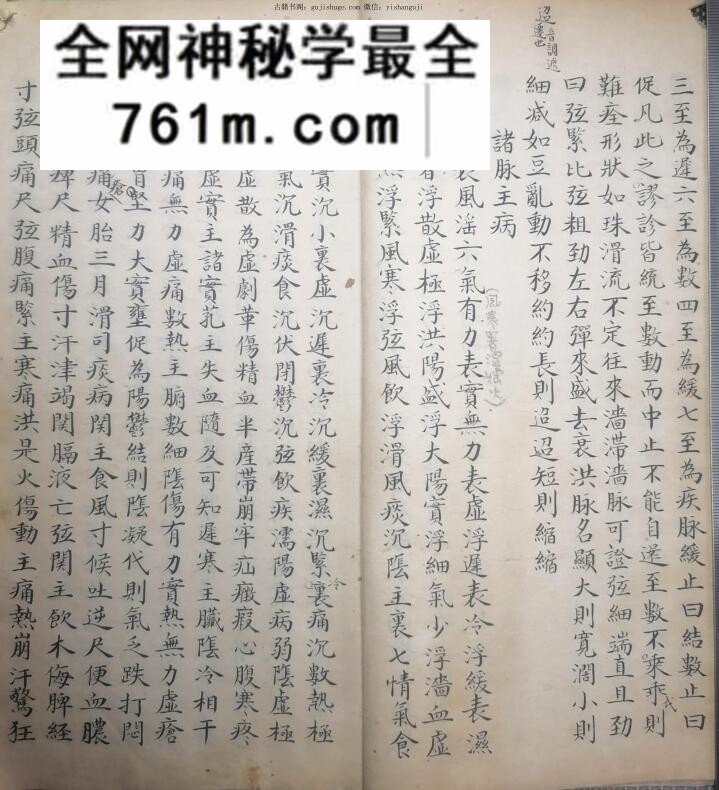 古籍书阁: gujishuge.com 微信: yishanguji
全网神秘学最全
761m.com
迢音調遞
遷也
三至為遲六至為數四至為緩七至為疾脉緩止曰結數止曰
促凡此之謬診皆統至數動而中止不能自還至數不乘乖則
難痊形狀如珠滑流不定往來濇滯濇脉可證弦細端直且勁
曰弦緊比弦粗勁左右彈來盛去衰洪脉名顯大則寬濶小則
細减如豆亂動不移約約長則迢迢短則縮縮
諸脉主病
表風滛六氣有力表實無力表虛浮遲表冷浮緩表濕
浮散虛極浮洪陽盛浮大陽實浮細氣少浮濇血虛
浮緊風寒浮弦風飲浮滑風痰沉隂主裏七情氣食
實沉小裏虛沉遲裏冷沉緩裏濕沉緊裏痛沉數熱極
冷
氣沉滑痰食沉伏閉鬱沉弦飲疾濡陽虛病弱隂虛極
虛散為虛劇革傷精血半産帶崩牢疝癥瘕心腹寒疼
虛實主諸實芤主失血隨及可知遲寒主臟隂冷相干
痛無力虛痛數熱主腑數細隂傷有力實熱無力虛瘡
堅力大實壅促為陽鬱結則隂凝代則氣乏跌打悶
瘡
痛女胎三月滑司痰病関主食風寸候吐逆尺便血膿
痺尺精血傷寸汗津竭関膈液亡弦関主飲木侮脾經
寸弦頭痛尺弦腹痛緊主寒痛洪是火傷動主痛熱崩汗驚狂